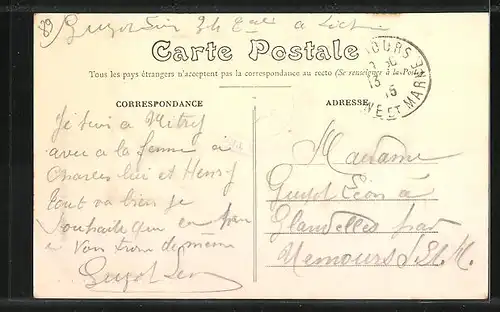 89
Guyot Léon 34 à
Carte Postale
Tous les pays étrangers n'acceptent pas la correspondance au recto (Se renseigner à la Poste)
OURS
13
15
NE ET MARNE
CORRESPONDANCE
ADRESSE
Je suis a Mitry
avec a la femme à
Charles lui et Henry
tout va bien je
souhaite que en
Vous trouve de même
Guyot Léon
Madame
Guyot Léon à
Glandelles par
Nemours S. et M.